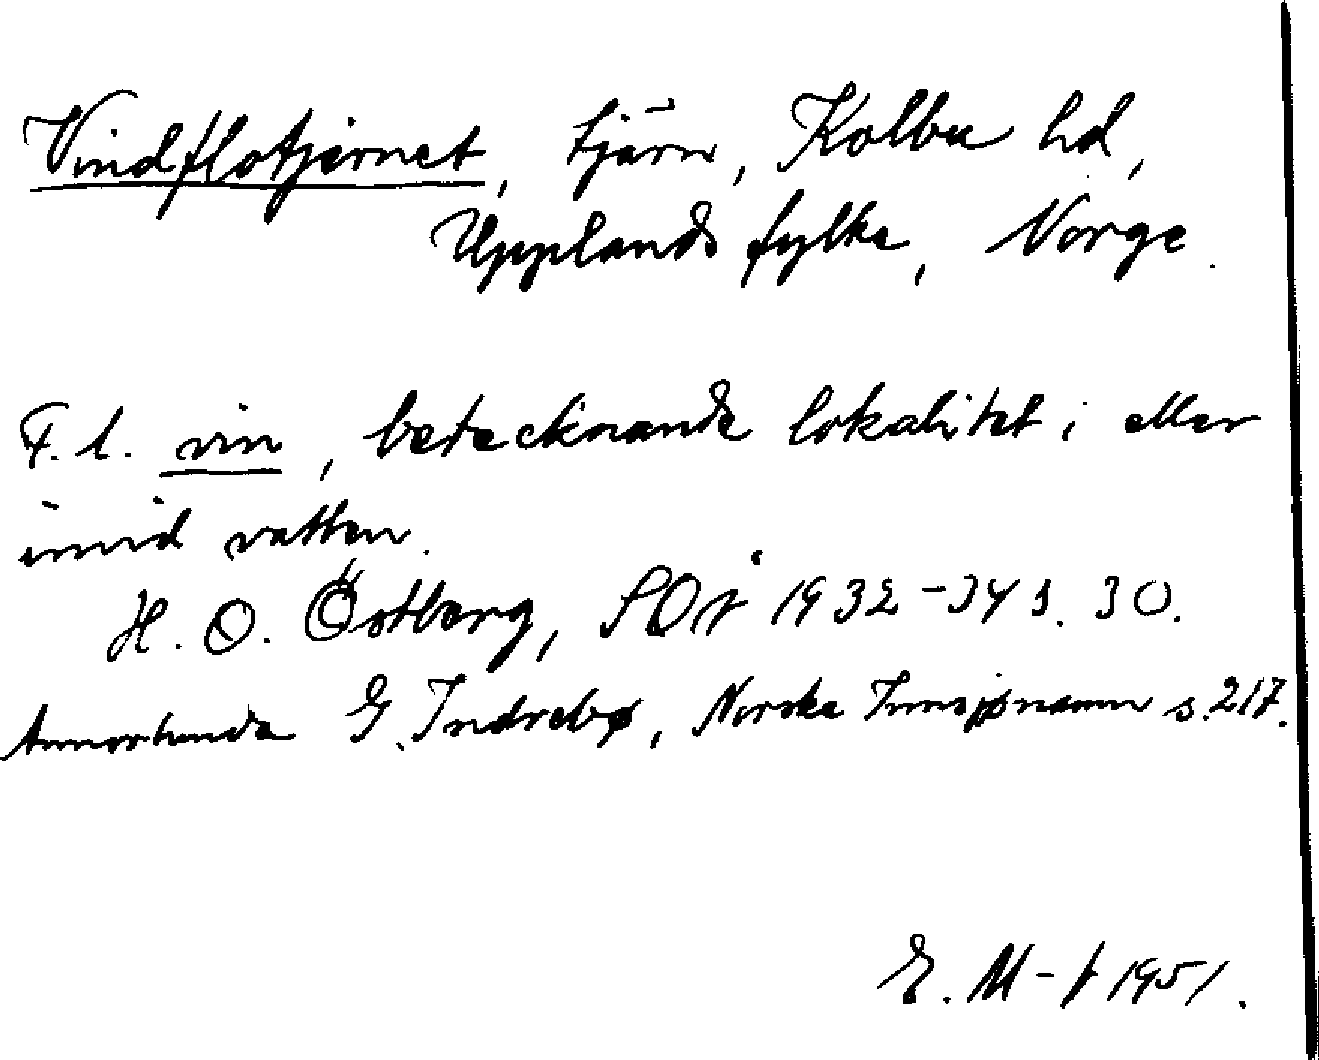 Vindflotjernet, tjärn, Kolbu hd,
Upplands fylke, Norge.
F. l. vin, betecknande lokalitet i eller
invid vatten.
H. O. Östberg, SOÅ 1932-34 s. 30.
Annorlunda G. Indrebø, Norske Innsjønamn s. 217.
E. M-t 1951.